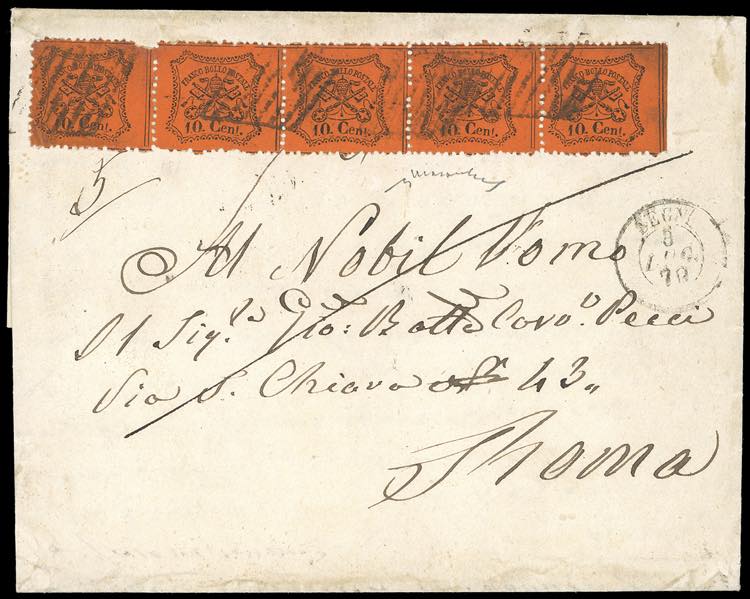 FRANCO BOLLO POSTALE FRANCO BOLLO POSTALE FRANCO BOLLO POSTALE FRANCO BOLLO POSTALE FRANCO BOLLO POSTALE
10 Cent. 10 Cent. 10 Cent. 10 Cent. 10 Cent.
5
SEGNI
5
LUG.
70
Al Nobil Uomo
Il Sig.r Gio: Batta Cav.o Pecci
Via S. Chiara 43,,
Roma